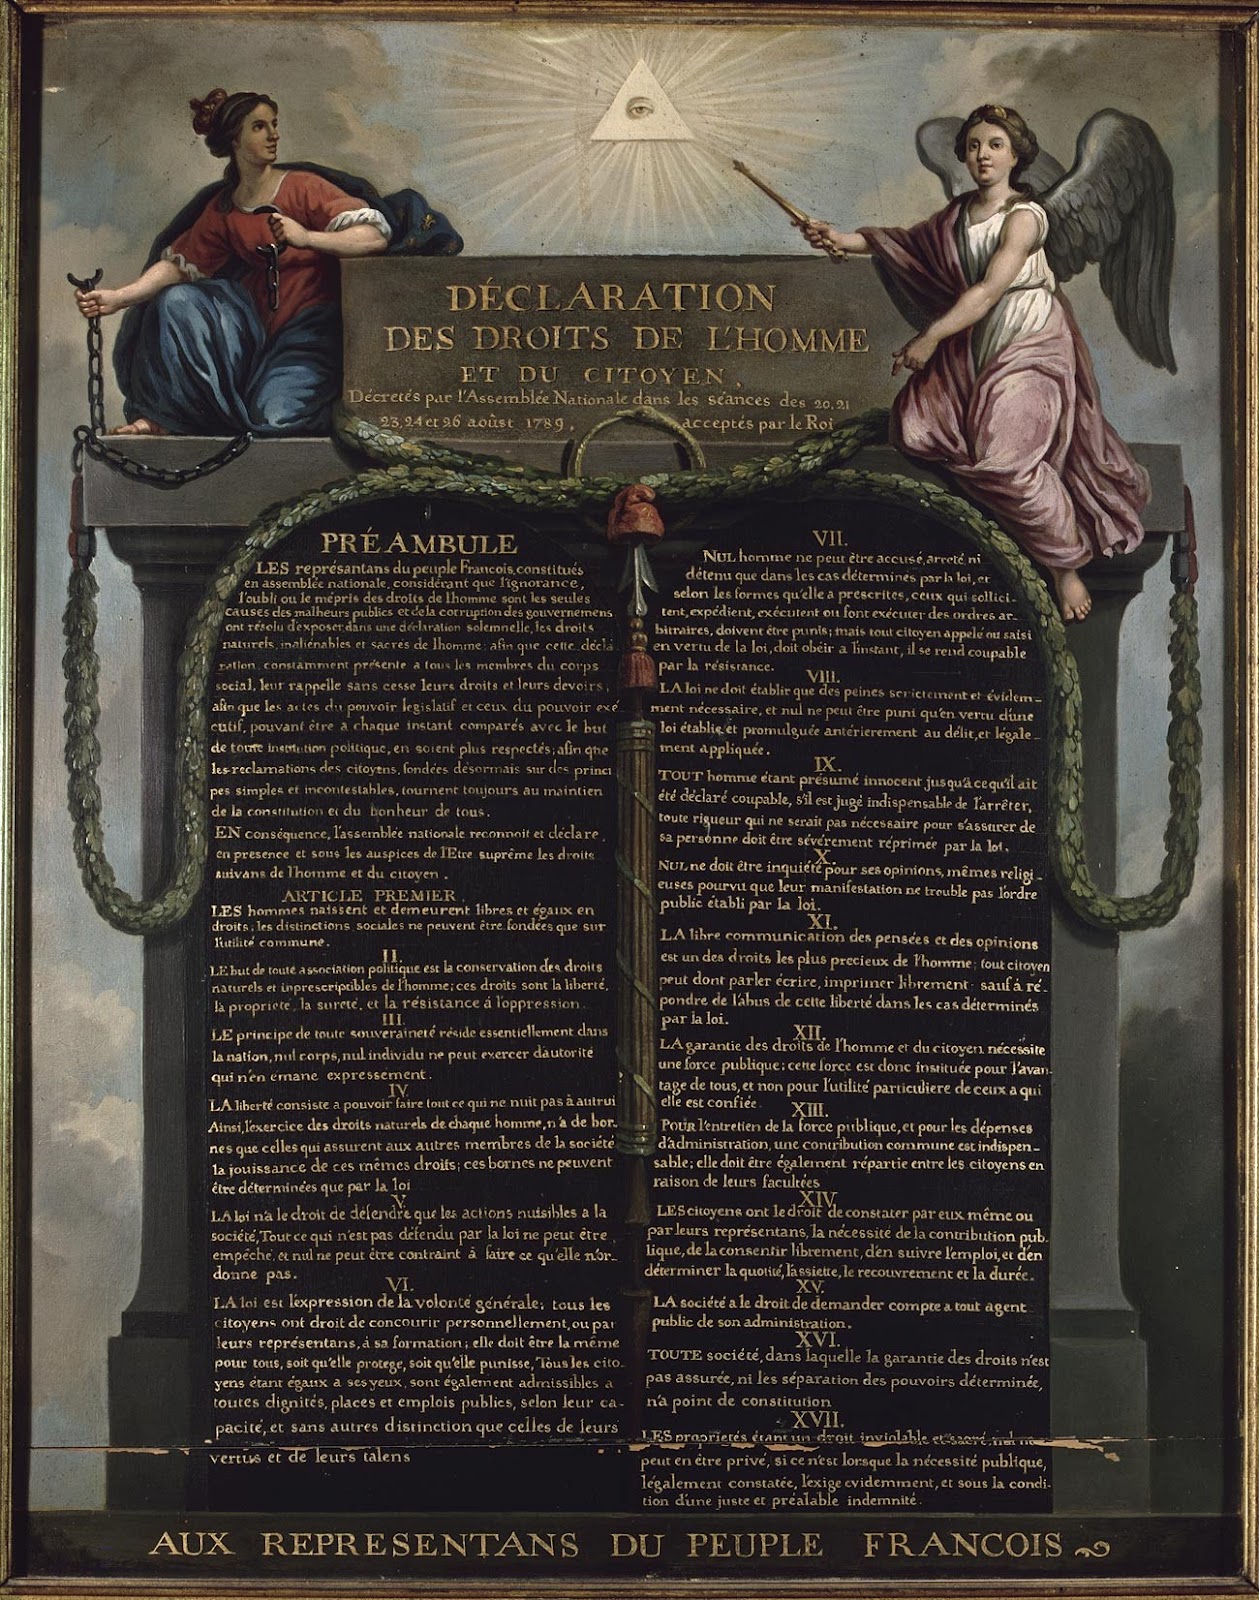 DÉCLARATION
DES DROITS DE L'HOMME
ET DU CITOYEN,
Décretés par l'Assemblée Nationale dans les séances des 20, 21
23, 24 et 26 aoûst 1789, acceptés par le Roi
PRÉAMBULE
LES représantans du peuple Francois, constitués
en assemblée nationale, considérant que l'ignorance,
l'oubli ou le mépris des droits de l'homme sont les seules
causes des malheurs publics et de la corruption des gouvernemens
ont résolu d'exposer dans une déclaration solemnelle, les droits
naturels, inaliénables et sacrés de l'homme; afin que cette décla
ration, constamment présente a tous les membres du corps
social, leur rappelle sans cesse leurs droits et leurs devoirs,
afin que les actes du pouvoir legislatif et ceux du pouvoir exé
cutif, pouvant être a chaque instant comparés avec le but
de toute institution politique, en soient plus respectés; afin que
les reclamations des citoyens, fondées désormais sur des princi
pes simples et incontestables, tournent toujours au maintien
de la constitution et du bonheur de tous.
EN conséquence, l'assemblée nationale reconnoit et déclare,
en presence et sous les auspices de l'Etre suprême les droits
suivans de l'homme et du citoyen.
ARTICLE PREMIER.
LES hommes naissent et demeurent libres et égaux en
droits, les distinctions sociales ne peuvent être fondées que sur
l'utilité commune.
II.
LE but de toute association politique est la conservation des droits
naturels et inprescriptibles de l'homme; ces droits sont la liberté,
la propriété, la sureté, et la résistance à l'oppression.
III.
LE principe de toute souveraineté réside essentiellement dans
la nation, nul corps, nul individu ne peut exercer d'autorité
qui n'en émane expressement.
IV.
LA liberté consiste a pouvoir faire tout ce qui ne nuit pas à autrui
Ainsi, l'exercice des droits naturels de chaque homme, n'a de bor-
nes que celles qui assurent aux autres membres de la société
la jouissance de ces mêmes droits; ces bornes ne peuvent
être déterminées que par la loi
V.
LA loi n'a le droit de défendre que les actions nuisibles a la
société, Tout ce qui n'est pas défendu par la loi ne peut être
empêché, et nul ne peut être contraint à faire ce qu'elle n'or-
donne pas.
VI.
LA loi est l'expression de la volonté générale; tous les
citoyens ont droit de concourir personnellement, ou par
leurs représentans, à sa formation; elle doit être la même
pour tous, soit qu'elle protege, soit qu'elle punisse, Tous les cito-
yens étant égaux a ses yeux, sont également admissibles a
toutes dignités, places et emplois publics, selon leur ca-
pacité, et sans autres distinction que celles de leurs
vertus et de leurs talens
VII.
NUL homme ne peut être accusé, arreté ni
détenu que dans les cas déterminés par la loi, et
selon les formes qu'elle a prescrites, ceux qui sollici-
tent, expédient, exécutent ou font exécuter des ordres ar-
bitraires, doivent être punis; mais tout citoyen appelé ou saisi
en vertu de la loi, doit obéir a l'instant, il se rend coupable
par la résistance.
VIII.
LA loi ne doit établir que des peines strictement et évidem-
ment nécessaire, et nul ne peut être puni qu'en vertu d'une
loi établie et promulguée antérierement au délit, et légale-
ment appliquée.
IX.
TOUT homme étant présumé innocent jusqu'a ce qu'il ait
été déclaré coupable, s'il est jugé indispensable de l'arrêter,
toute rigueur qui ne serait pas nécessaire pour s'assurer de
sa personne doit être sévérement réprimée par la loi.
X.
NUL ne doit être inquiété pour ses opinions, mêmes religi-
euses pourvu que leur manifestation ne trouble pas l'ordre
public établi par la loi.
XI.
LA libre communication des pensées et des opinions
est un des droits les plus precieux de l'homme; tout citoyen
peut dont parler écrire, imprimer librement sauf à ré-
pondre de l'abus de cette liberté dans les cas déterminés
par la loi.
XII.
LA garantie des droits de l'homme et du citoyen nécessite
une force publique; cette force est donc instituée pour l'avan-
tage de tous, et non pour l'utilité particuliere de ceux a qui
elle est confiée.
XIII.
POUR l'entretien de la force publique, et pour les dépenses
d'administration, une contribution commune est indispen-
sable; elle doit être également répartie entre les citoyens en
raison de leurs facultées
XIV.
LES citoyens ont le droit de constater par eux même ou
par leurs représentans, la nécessité de la contribution pub-
lique, de la consentir librement, d'en suivre l'emploi, et d'en
déterminer la quotité, l'assiette, le recouvrement et la durée.
XV.
LA société a le droit de demander compte a tout agent
public de son administration.
XVI.
TOUTE société, dans laquelle la garantie des droits n'est
pas assurée, ni les séparation des pouvoirs déterminée,
n'a point de constitution
XVII.
LES propriétés étant un droit inviolable et sacré, nul ne
peut en être privé, si ce n'est lorsque la nécessité publique,
légalement constatée, l'exige evidemment, et sous la condi-
tion d'une juste et préalable indemnité.
AUX REPRESENTANS DU PEUPLE FRANCOIS